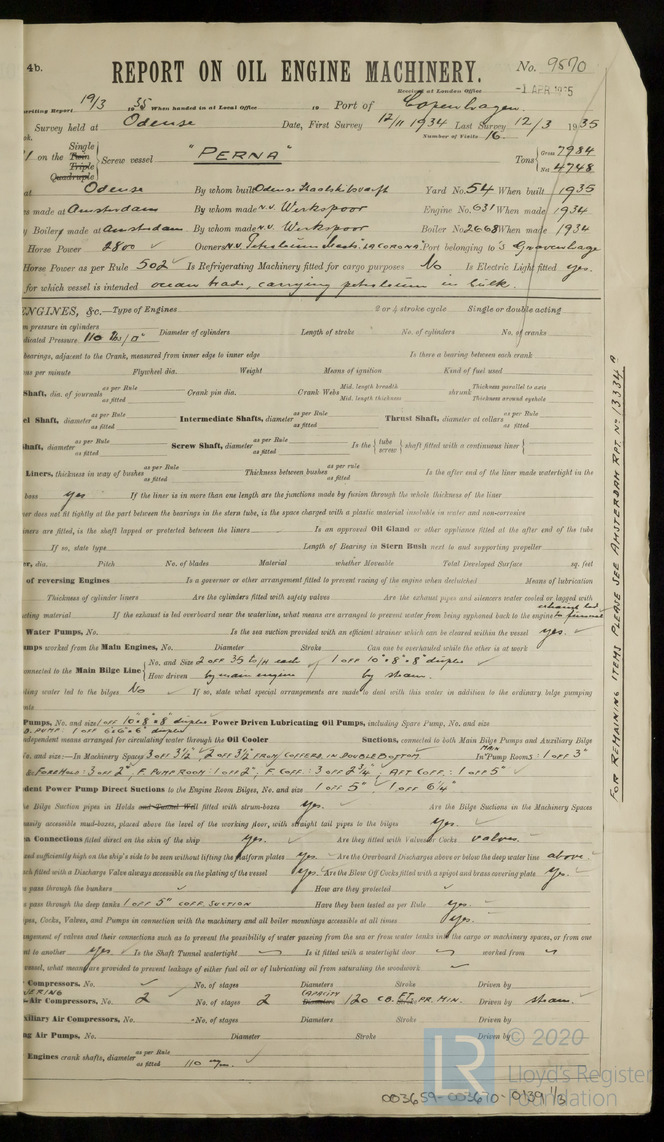 4b.
REPORT ON OIL ENGINE MACHINERY.
No. 9870
Received at London Office
-1 APR 1935
writing Report 19/3 1935 When handed in at Local Office 19 Port of Copenhagen.
Survey held at Odense Date, First Survey 12/11 1934 Last Survey 12/3 1935
Number of Visits 16
on the Single Twin Triple Quadruple Screw vessel "PERNA" Tons Gross 7984 Net 4748
at Odense By whom built Odense Staalskibsværft Yard No. 54 When built 1935
s made at Amsterdam By whom made N.V. Werkspoor Engine No. 631 When made 1934
y Boilers made at Amsterdam By whom made N.V. Werkspoor Boiler No. 2668 When made 1934
Horse Power 2800 Owners N.V. Petroleum Maats. LA CORONA Port belonging to 's Gravenhage
Horse Power as per Rule 502 Is Refrigerating Machinery fitted for cargo purposes No Is Electric Light fitted yes.
for which vessel is intended ocean trade, carrying petroleum in bulk.
ENGINES, &c.—Type of Engines 2 or 4 stroke cycle Single or double acting
m pressure in cylinders
dicated Pressure 110 lbs/□" Diameter of cylinders Length of stroke No. of cylinders No. of cranks
bearings, adjacent to the Crank, measured from inner edge to inner edge Is there a bearing between each crank
ns per minute Flywheel dia. Weight Means of ignition Kind of fuel used
Shaft, dia. of journals as per Rule as fitted Crank pin dia. Crank Webs Mid. length breadth Mid. length thickness shrunk Thickness parallel to axis Thickness around eyehole
el Shaft, diameter as per Rule as fitted Intermediate Shafts, diameter as per Rule as fitted Thrust Shaft, diameter at collars as per Rule as fitted
Shaft, diameter as per Rule as fitted Screw Shaft, diameter as per Rule as fitted Is the { tube screw } shaft fitted with a continuous liner {
Liners, thickness in way of bushes as per Rule as fitted Thickness between bushes as per rule as fitted Is the after end of the liner made watertight in the
boss yes If the liner is in more than one length are the junctions made by fusion through the whole thickness of the liner
er does not fit tightly at the part between the bearings in the stern tube, is the space charged with a plastic material insoluble in water and non-corrosive
iners are fitted, is the shaft lapped or protected between the liners Is an approved Oil Gland or other appliance fitted at the after end of the tube
If so, state type Length of Bearing in Stern Bush next to and supporting propeller
er, dia. Pitch No. of blades Material whether Moveable Total Developed Surface sq. feet
of reversing Engines Is a governor or other arrangement fitted to prevent racing of the engine when declutched Means of lubrication
Thickness of cylinder liners Are the cylinders fitted with safety valves Are the exhaust pipes and silencers water cooled or lagged with
cting material If the exhaust is led overboard near the waterline, what means are arranged to prevent water from being syphoned back to the engine exhaust led to funnel
Water Pumps, No. Is the sea suction provided with an efficient strainer which can be cleared within the vessel yes.
umps worked from the Main Engines, No. Diameter Stroke Can one be overhauled while the other is at work
onnected to the Main Bilge Line { No. and Size 2 OFF 35 to/H each 1 OFF 10"•8"•8" duplex
How driven by main engine by steam.
ling water led to the bilges No If so, state what special arrangements are made to deal with this water in addition to the ordinary bilge pumping
nts
Pumps, No. and size 1 OFF 10"•8"•8" duplex Power Driven Lubricating Oil Pumps, including Spare Pump, No. and size
B. PUMP 1 OFF 6"•6"•6" duplex
ndependent means arranged for circulating water through the Oil Cooler Suctions, connected to both Main Bilge Pumps and Auxiliary Bilge
No. and size:—In Machinery Spaces 3 OFF 3½", 2 OFF 3½" FROM COFFERD. IN DOUBLE BOTTOM In MAIN Pump Rooms : 1 OFF 3"
FORE HOLD : 3 OFF 2", F. PUMP ROOM : 1 OFF 2", F. COFF : 3 OFF 2¾", AFT COFF : 1 OFF 5"
dent Power Pump Direct Suctions to the Engine Room Bilges, No. and size 1 OFF 5" 1 OFF 6¼"
he Bilge Suction pipes in Holds and Tunnel Well fitted with strum-boxes yes. Are the Bilge Suctions in the Machinery Spaces
easily accessible mud-boxes, placed above the level of the working floor, with straight tail pipes to the bilges yes.
a Connections fitted direct on the skin of the ship yes. Are they fitted with Valves or Cocks valves.
xed sufficiently high on the ship's side to be seen without lifting the platform plates yes. Are the Overboard Discharges above or below the deep water line above
ach fitted with a Discharge Valve always accessible on the plating of the vessel yes. Are the Blow Off Cocks fitted with a spigot and brass covering plate yes.
s pass through the bunkers How are they protected
s pass through the deep tanks 1 OFF 5" COFF. SUCTION Have they been tested as per Rule yes.
ipes, Cocks, Valves, and Pumps in connection with the machinery and all boiler mountings accessible at all times yes.
angement of valves and their connections such as to prevent the possibility of water passing from the sea or from water tanks into the cargo or machinery spaces, or from one
nt to another yes. Is the Shaft Tunnel watertight Is it fitted with a watertight door worked from
vessel, what means are provided to prevent leakage of either fuel oil or of lubricating oil from saturating the woodwork
Compressors, No. No. of stages Diameters Stroke Driven by
-Air Compressors, No. 2 No. of stages 2 CAPACITY Diameters 120 CB. FT. PR. MIN. Driven by steam.
xiliary Air Compressors, No. No. of stages Diameters Stroke Driven by
ng Air Pumps, No. Diameter Stroke Driven by
Engines crank shafts, diameter as per Rule as fitted 110 m/m.
FOR REMAINING ITEMS PLEASE SEE AMSTERDAM RPT. No 13334A
LR © 2020
Lloyd's Register
Foundation
003659-003670-0139 1/3